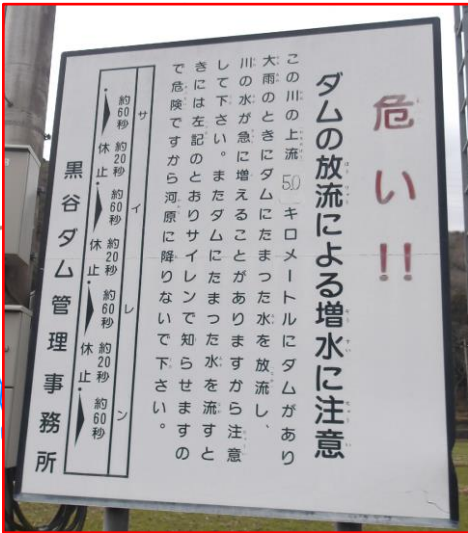 危い!!
ダムの放流による増水に注意
この川の上流5.0キロメートルにダムがあり
大雨のときにダムにたまった水を放流し、
川の水が急に増えることがありますから注意
して下さい。またダムにたまった水を流すと
きには左記のとおりサイレンで知らせますの
で危険ですから河原に降りないで下さい。
サイレン
約60秒
約20秒
休止
約60秒
約20秒
休止
約60秒
約20秒
休止
約60秒
黒谷ダム管理事務所